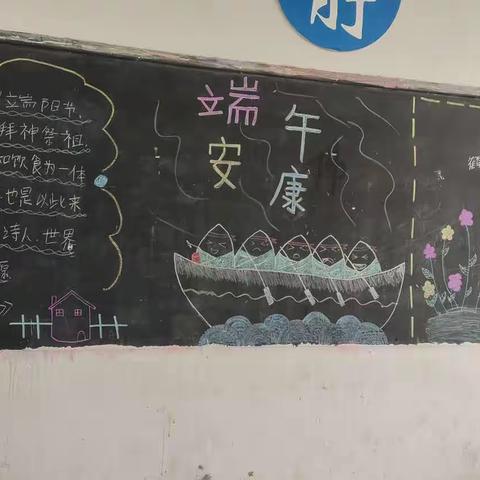 端午
安康
端阳节,
拜神祭祖,
饮食为一体
也是以此来
诗人.世界
愿